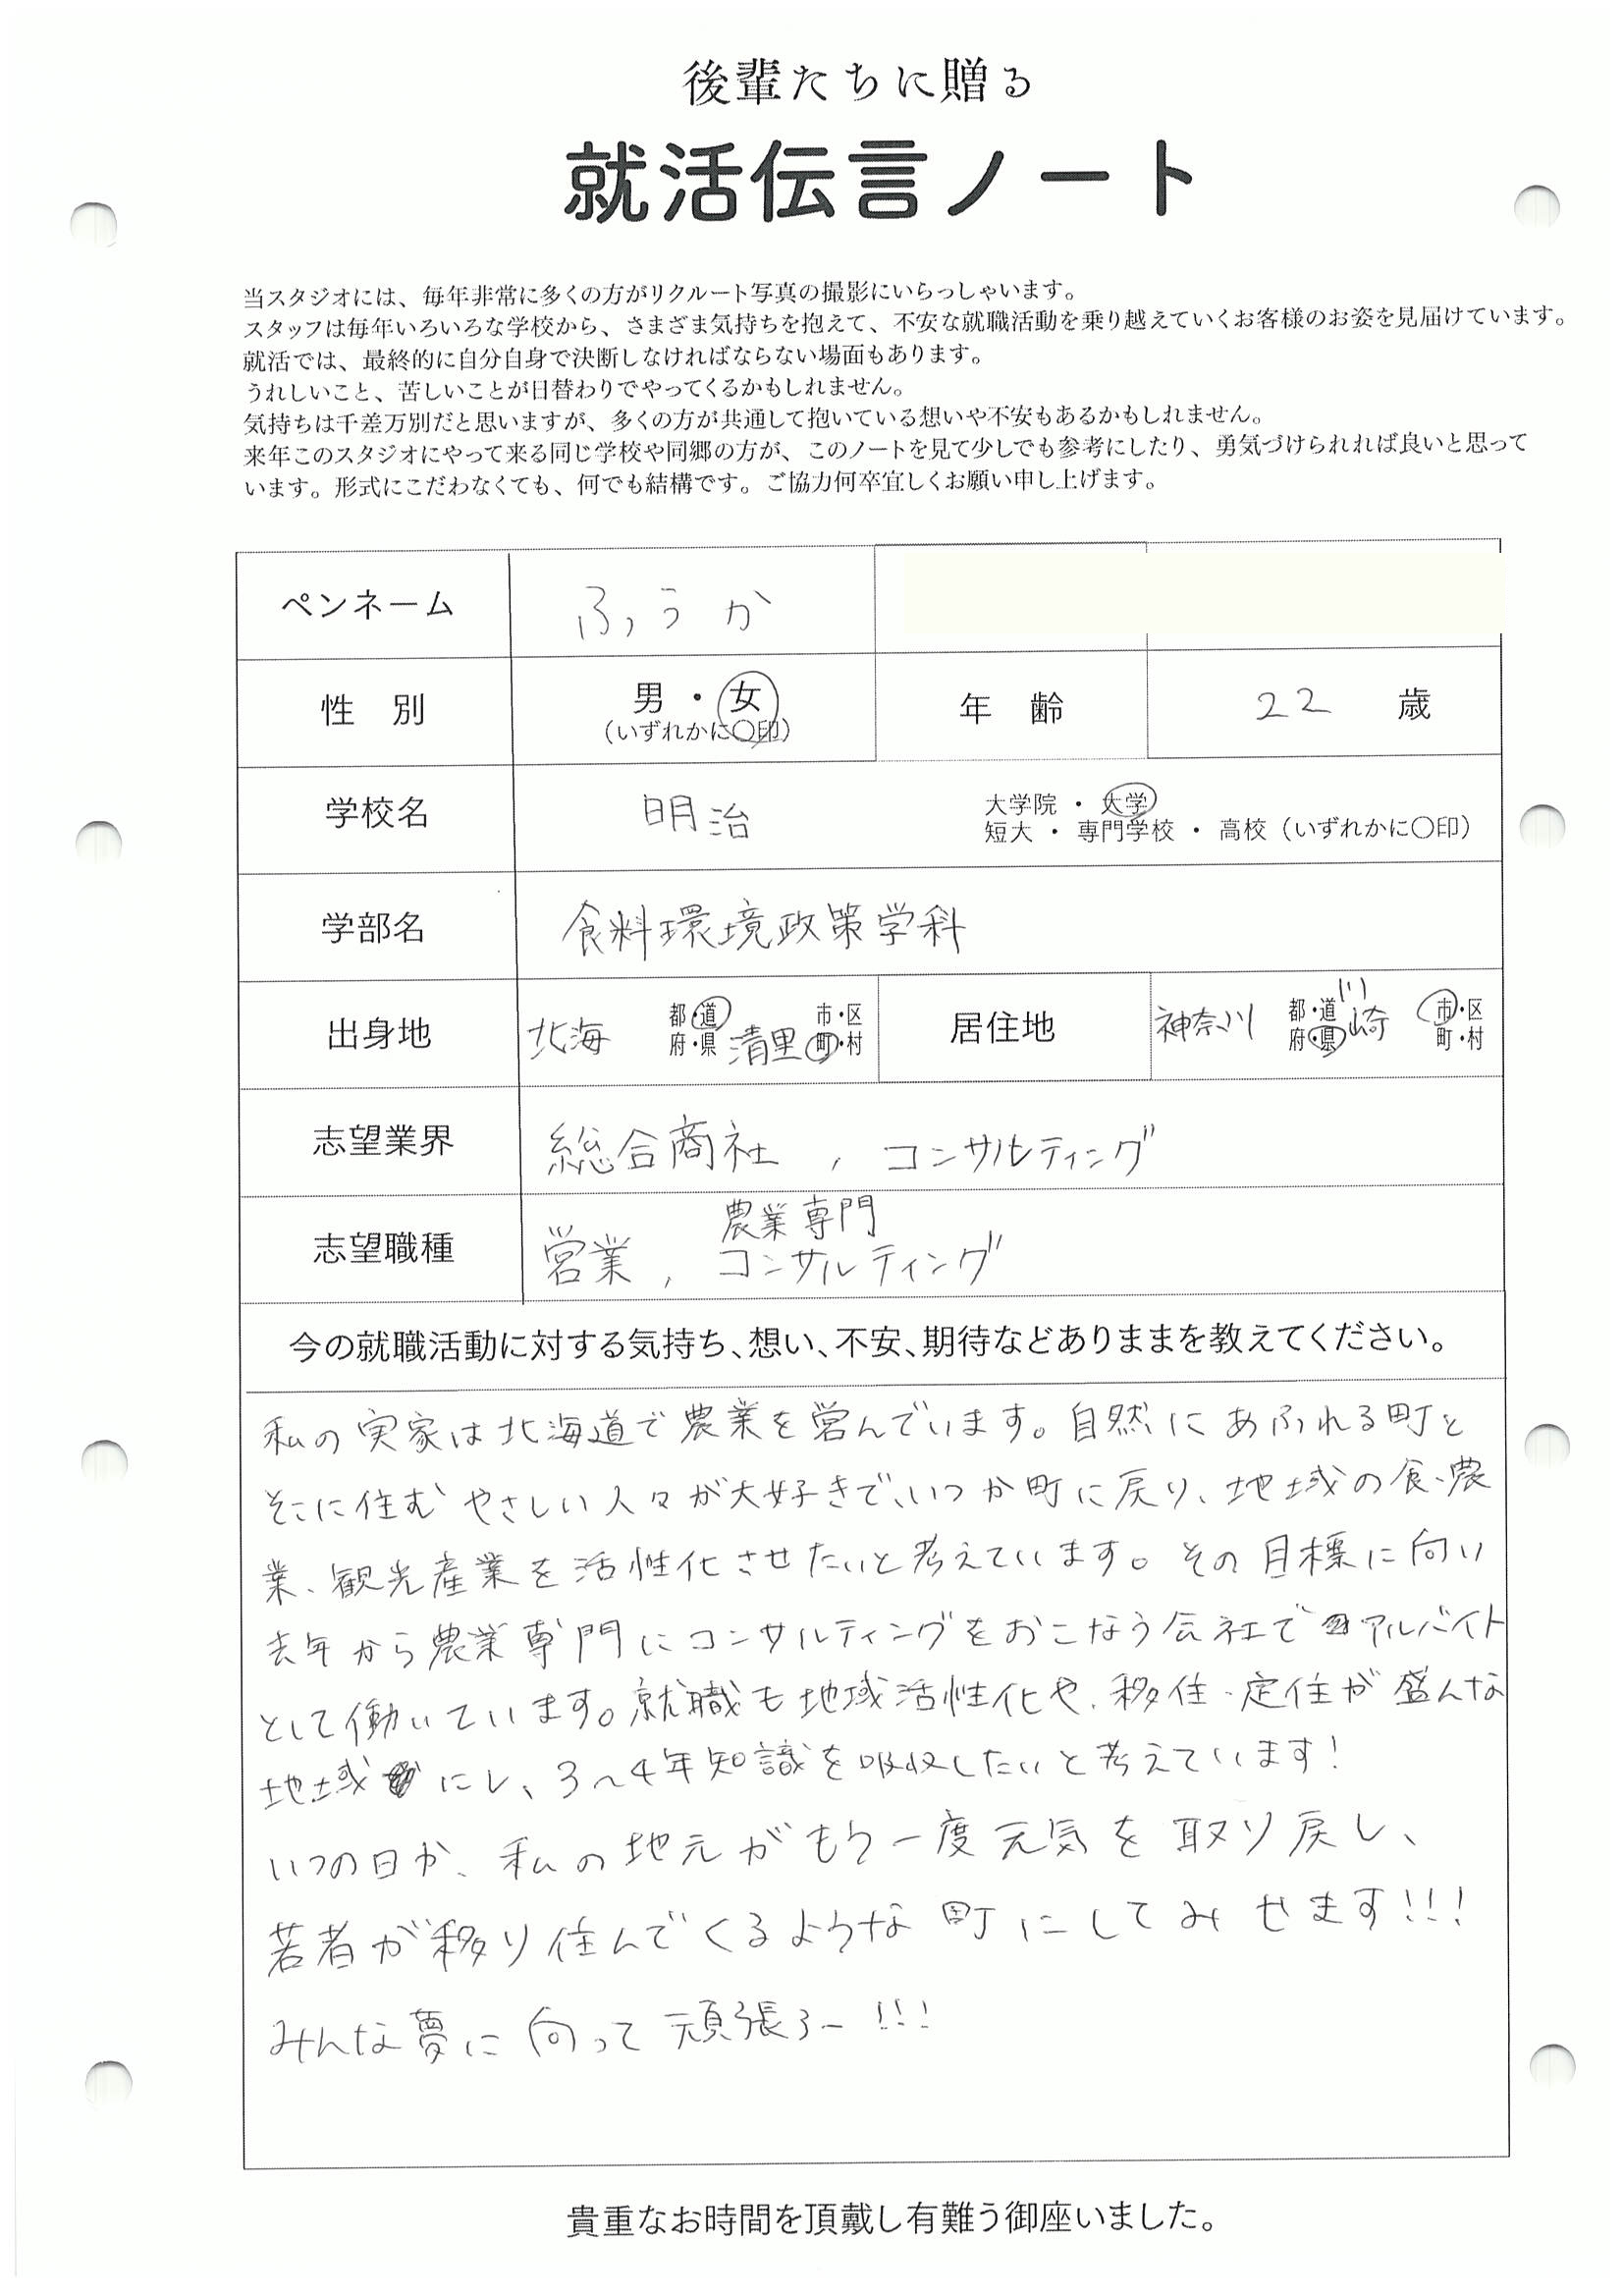 後輩たちに贈る
就活伝言ノート
当スタジオには、毎年非常に多くの方がリクルート写真の撮影にいらっしゃいます。
スタッフは毎年いろいろな学校から、さまざま気持ちを抱えて、不安な就職活動を乗り越えていくお客様のお姿を見届けています。
就活では、最終的に自分自身で決断しなければならない場面もあります。
うれしいこと、苦しいことが日替わりでやってくるかもしれません。
気持ちは千差万別だと思いますが、多くの方が共通して抱いている想いや不安もあるかもしれません。
来年このスタジオにやって来る同じ学校や同郷の方が、このノートを見て少しでも参考にしたり、勇気づけられれば良いと思って
います。形式にこだわなくても、何でも結構です。ご協力何卒宜しくお願い申し上げます。
ペンネーム ふうか
性 別 男 ・ 女 (いずれかに○印) 年 齢 22 歳
学校名 明治 大学院 ・ 大学
短大 ・ 専門学校 ・ 高校 (いずれかに○印)
学部名 食料環境政策学科
出身地 北海 都・道 府・県 清里 市・区 町・村 居住地 神奈川 都・道 府・県 川崎 市・区 町・村
志望業界 総合商社 , コンサルティング
志望職種 営業 , 農業専門コンサルティング
今の就職活動に対する気持ち、想い、不安、期待などありままを教えてください。
私の実家は北海道で農業を営んでいます。自然にあふれる町と
そこに住むやさしい人々が大好きで、いつか町に戻り、地域の食、農
業、観光産業を活性化させたいと考えています。その目標に向い
去年から農業専門にコンサルティングをおこなう会社でアルバイト
として働いています。就職も地域活性化や、移住・定住が盛んな
地域にし、3〜4年知識を吸収したいと考えています!
いつの日か、私の地元がもう一度元気を取り戻し、
若者が移り住んでくるような町にしてみせます!!!
みんな夢に向って頑張ろー!!!
貴重なお時間を頂戴し有難う御座いました。